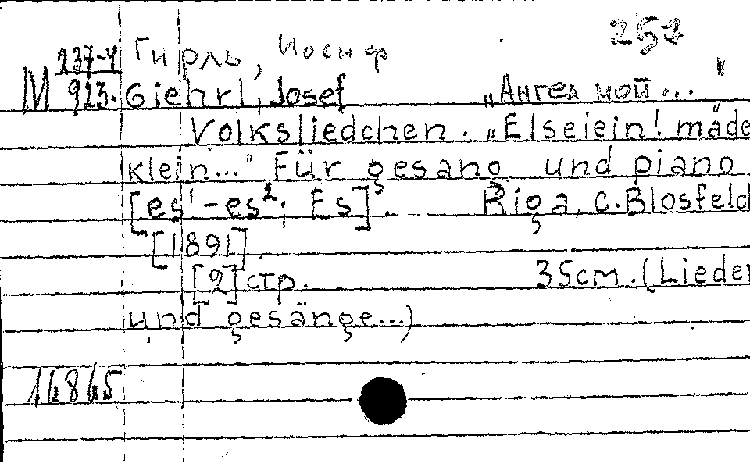 257
237-4 Гирль, Иосиф
М 923. Giehrl, Josef „Ангел мой..."
Volksliedchen. „Elselein! mäde
klein..." Für gesang und piano.
[es¹-es²; Es]. Riga, C. Blosfeld
[1891].
[2] стр. 35cm. (Lieder
und gesänge...)
16865